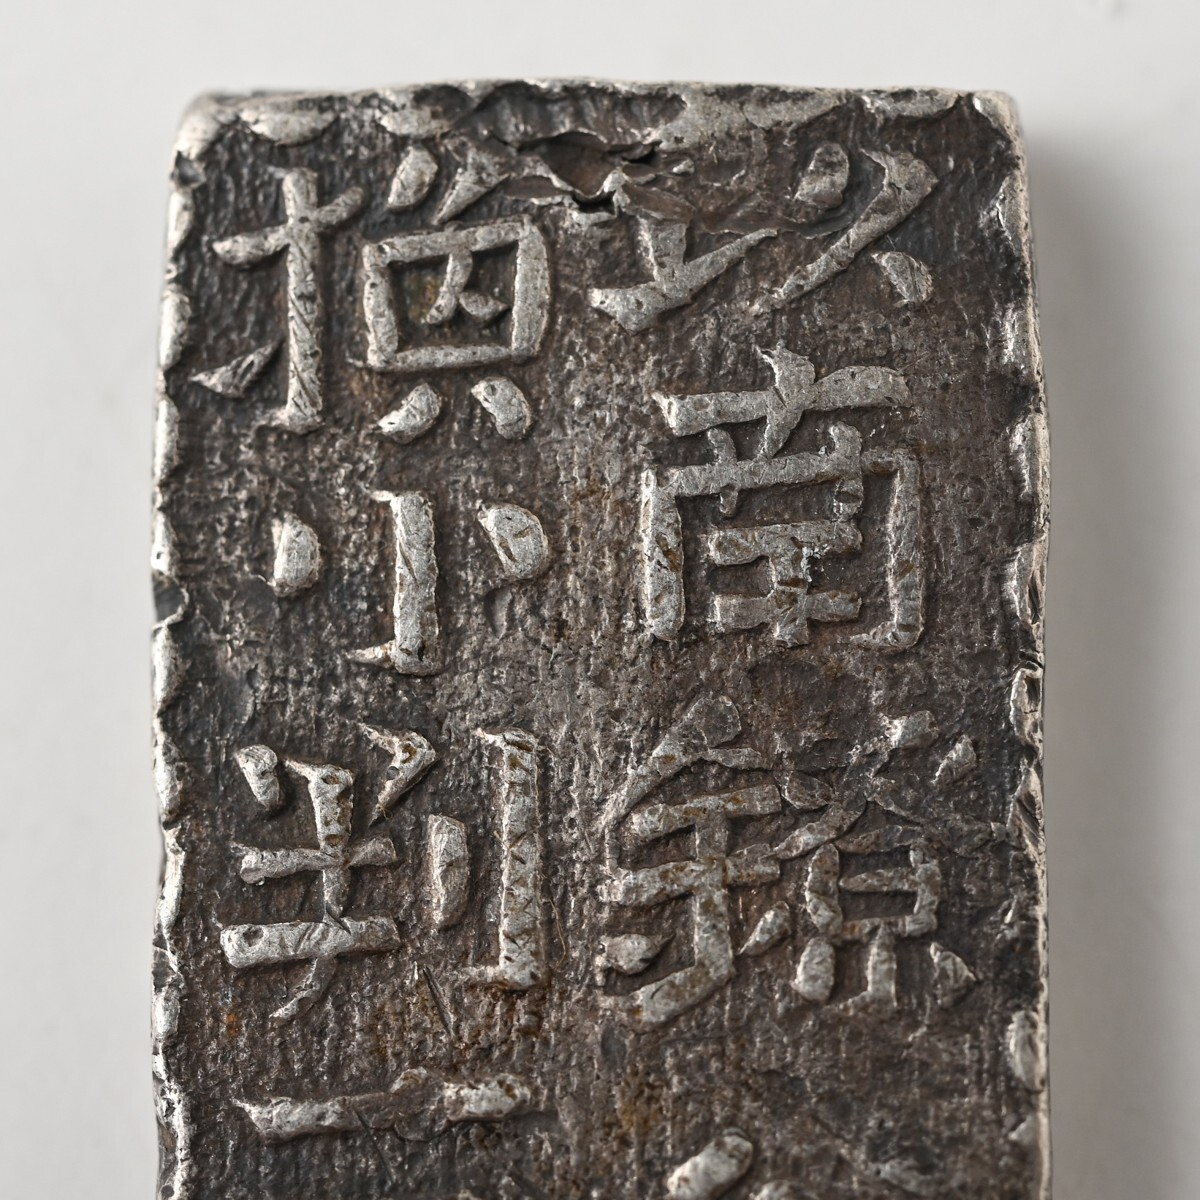 以南鐐
換小判一